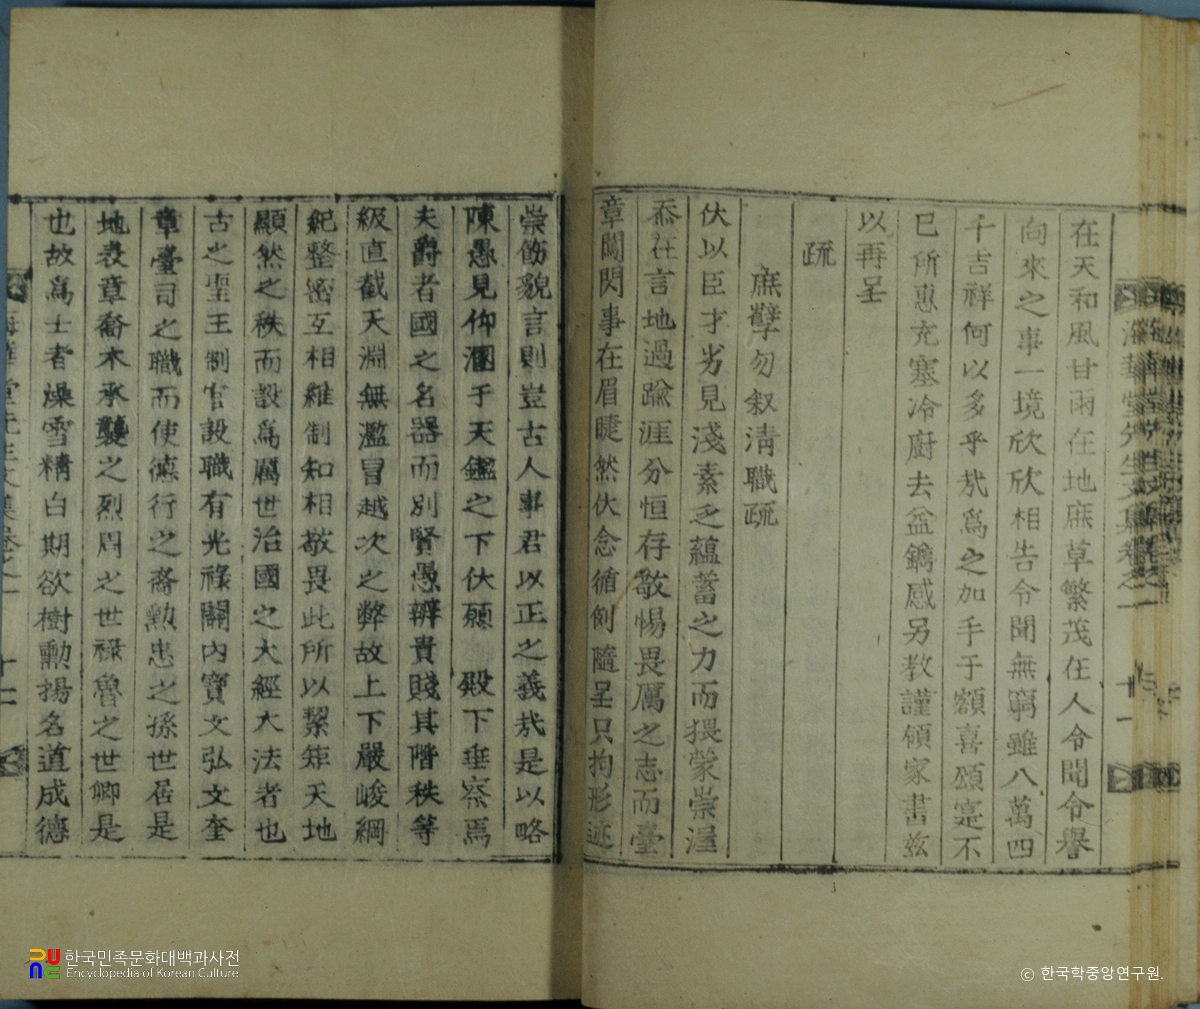 在天和風甘雨在地庶草繁茂在人令聞令譽
向來之事一境欣欣相告令聞無窮雖八萬四
千吉祥何以多乎㢤爲之加手于額喜頌寔不
已所惠充塞冷廚去益鐫感另教謹領家書玆
以再呈
疏
庶孽勿叙淸職疏
伏以臣才劣見淺素乏蘊蓄之力而猥蒙崇渥
忝在言地過踰涯分恒存敬惕畏厲之志而臺
章鬧閃事在眉睫然伏念循例隨呈只拘形迹
崇飭貌言則豈古人事君以正之義㢤是以略
陳愚見仰溷于天鑑之下伏願 殿下垂察焉
夫爵者國之名器而別賢愚辨貴賤其階秩等
級直截天淵無濫冒越次之弊故上下嚴峻綱
紀整密互相維制知相敬畏此所以絜矩天地
顯然之秩而設爲厲世治國之大經大法者也
古之聖王制官設職有光祿闢內寶文弘文奎
章臺司之職而使德行之裔勳忠之孫世居是
地表章喬木承襲之烈周之世祿魯之世卿是
也故爲士者澡雪精白期欲樹勳揚名道成德
한국민족문화대백과사전
Encyclopedia of Korean Culture
© 한국학중앙연구원.